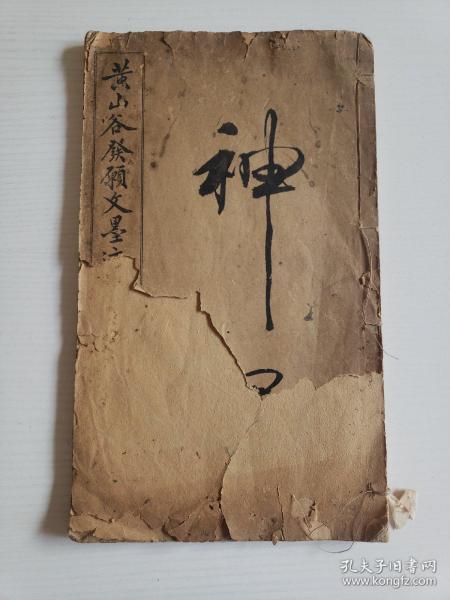 黄山谷發願文墨
神
孔夫子旧书网
www.kongfz.com